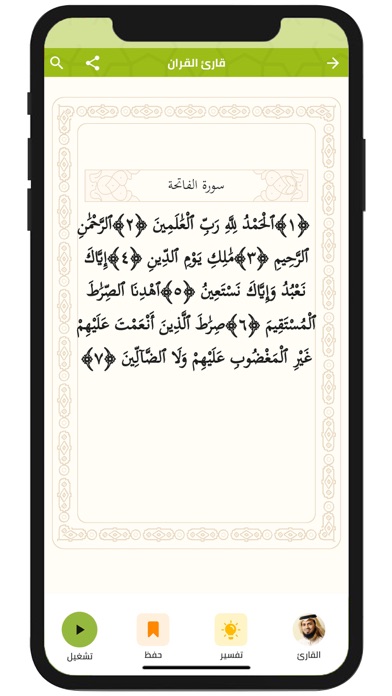 قارئ القران
سورة الفاتحة
﴿١﴾ ٱلْحَمْدُ لِلَّهِ رَبِّ ٱلْعَٰلَمِينَ ﴿٢﴾ ٱلرَّحْمَٰنِ
ٱلرَّحِيمِ ﴿٣﴾ مَٰلِكِ يَوْمِ ٱلدِّينِ ﴿٤﴾ إِيَّاكَ
نَعْبُدُ وَإِيَّاكَ نَسْتَعِينُ ﴿٥﴾ ٱهْدِنَا ٱلصِّرَٰطَ
ٱلْمُسْتَقِيمَ ﴿٦﴾ صِرَٰطَ ٱلَّذِينَ أَنْعَمْتَ عَلَيْهِمْ
غَيْرِ ٱلْمَغْضُوبِ عَلَيْهِمْ وَلَا ٱلضَّآلِّينَ ﴿٧﴾
القارئ تفسير حفظ تشغيل